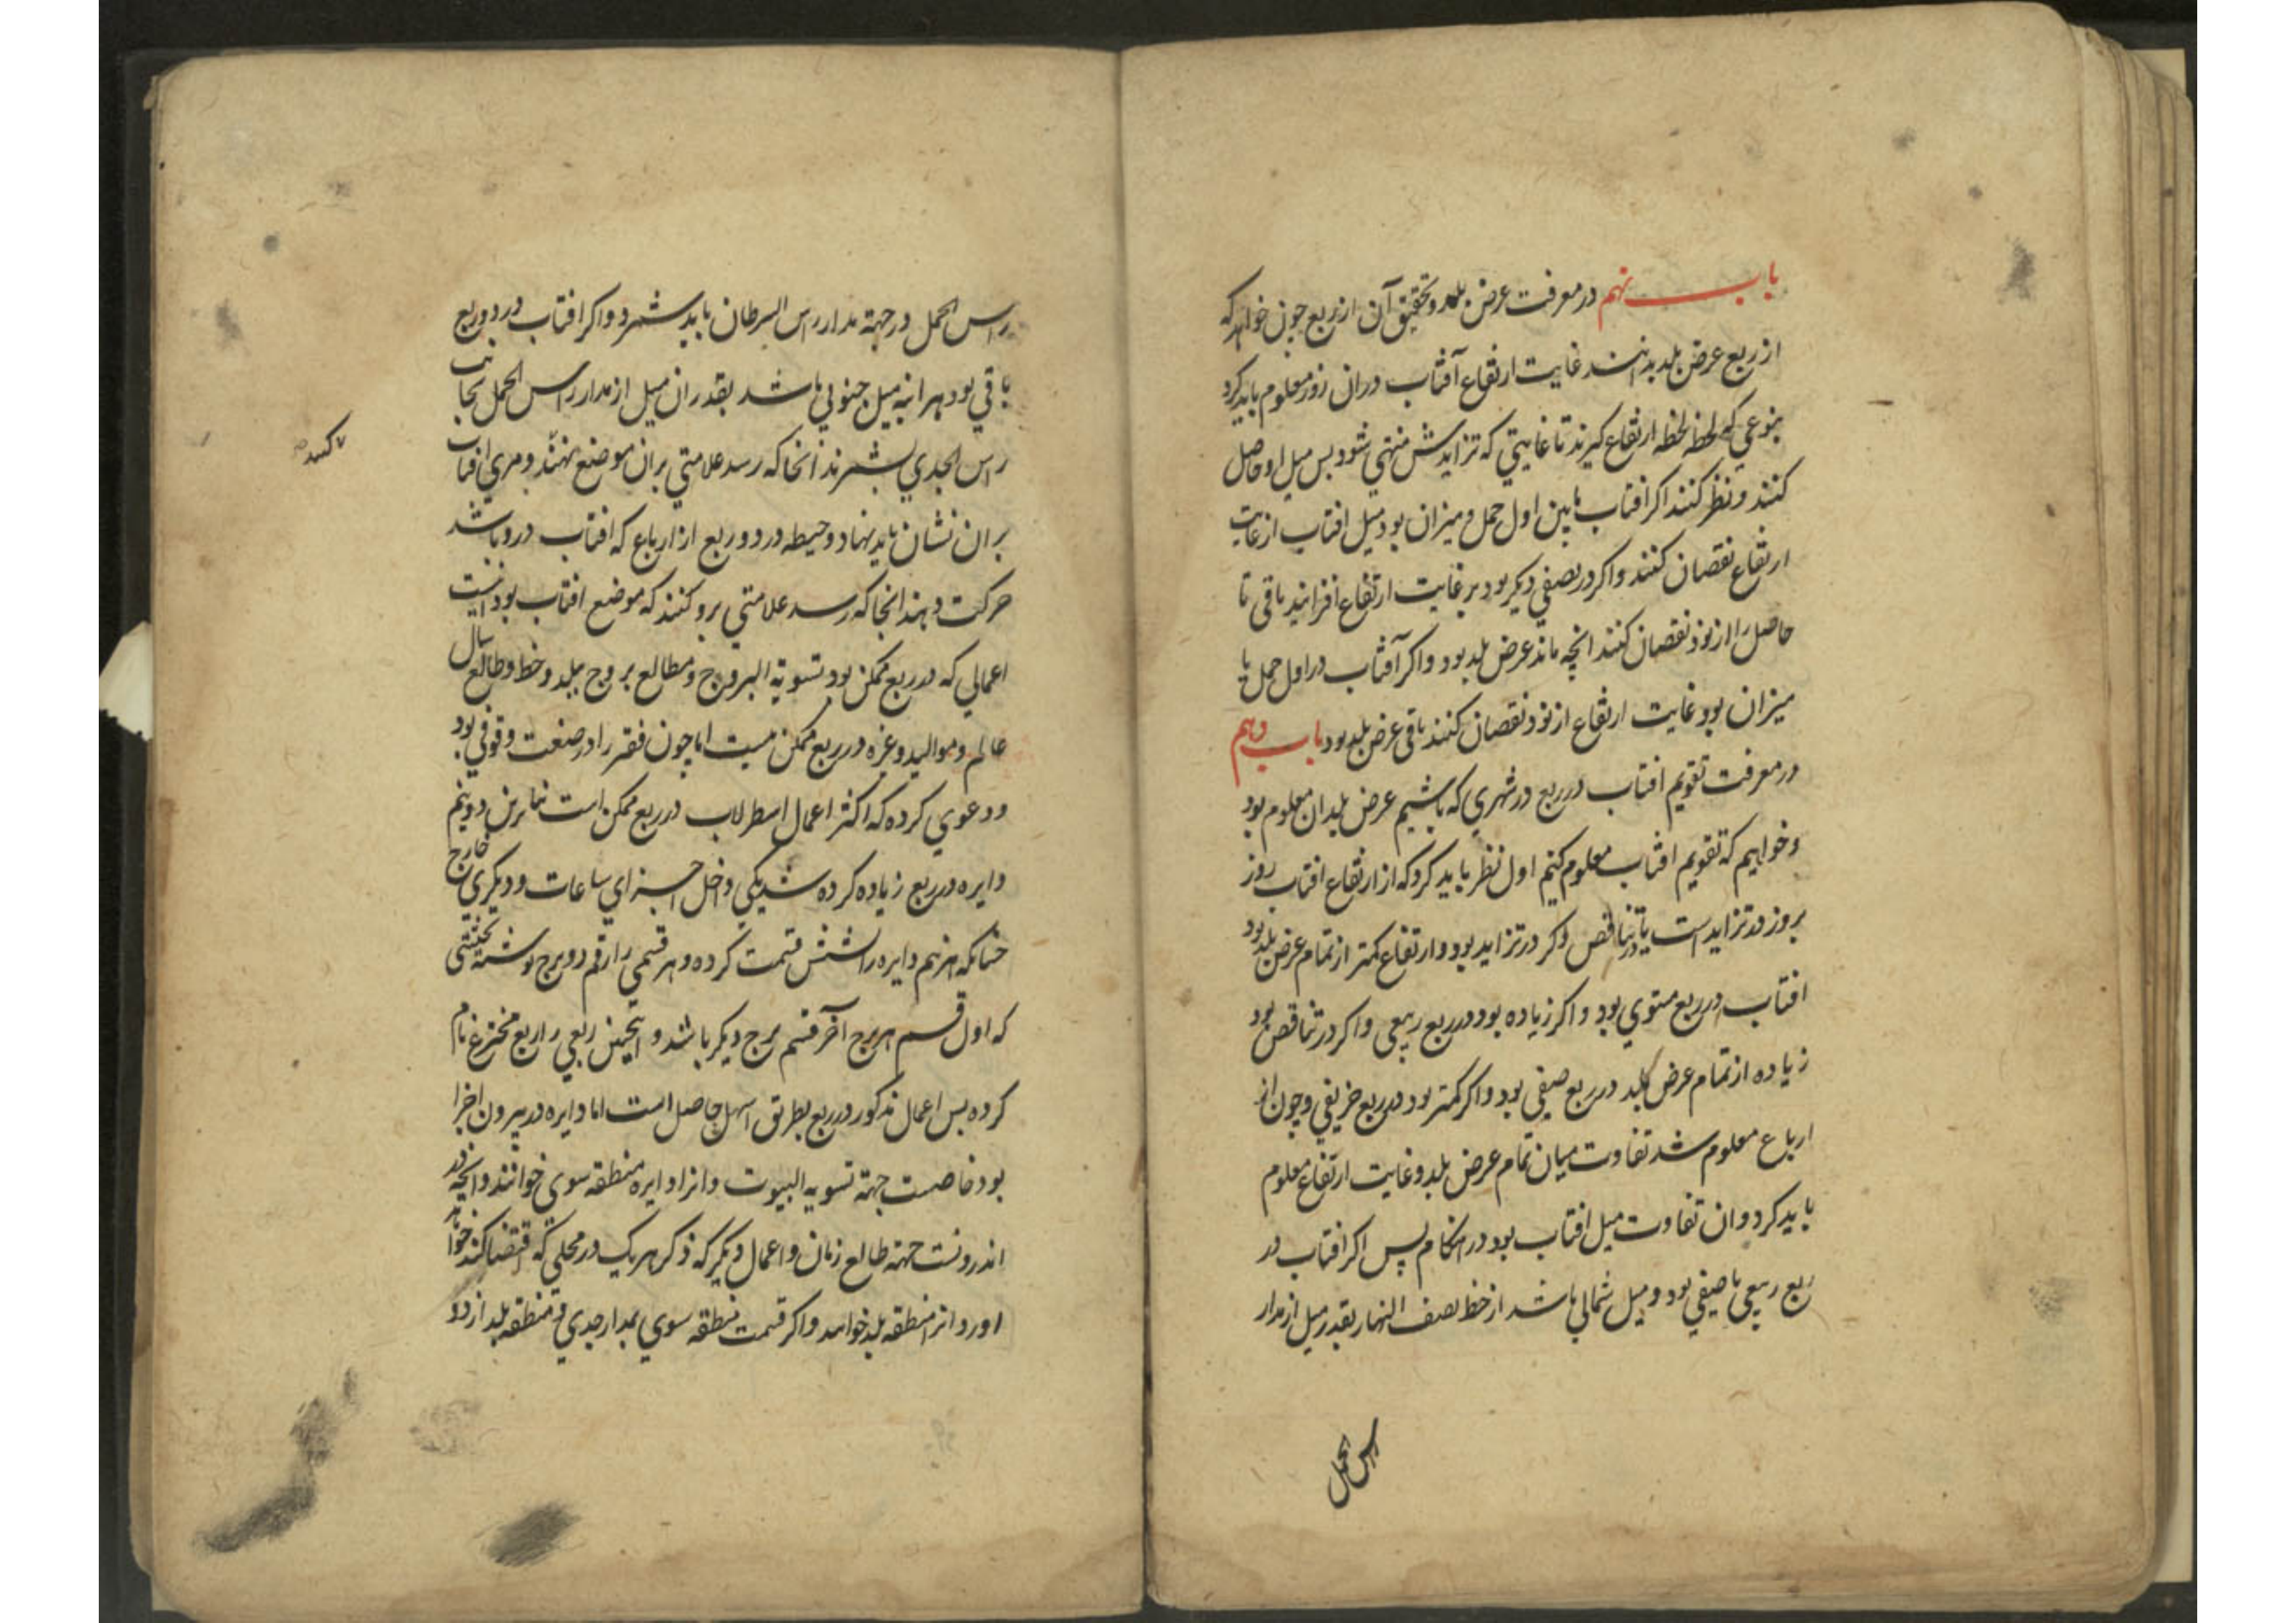 باب نهم در معرفت عرض بلد و تحقیق آن از ربع چون خواهد که
از ربع عرض بلد بدانند غایت ارتفاع آفتاب دران روز معلوم باید کرد
بنوعی که لحظه لحظه ارتفاع کیرند تا غایتی که تزایدش منتهی شود بس میل او حاصل
کنند و نظر کنند اکر افتاب مابین اول حمل و میزان بود میل افتاب از غایت
ارتفاع نقصان کنند و اکر در نصفی دیکر بود بر غایت ارتفاع افزایند باقی تا
حاصل را از نود نقصان کنند انچه ماند عرض بلد بود و اکر آفتاب در اول حمل یا
میزان بود غایت ارتفاع از نود نقصان کنند باقی عرض بلد بود باب دهم
در معرفت تقویم افتاب در ربع در شهری که باشیم عرض بلد ان معلوم بود
و خواهیم که تقویم افتاب معلوم کنیم اول نظر باید کرد که از ارتفاع افتاب روز
بروز در تزاید است یا در تناقص اکر در تزاید بود و ارتفاع کمتر از تمام عرض بلد بود
افتاب در ربع شتوی بود و اکر زیاده بود در ربع ربیعی و اکر در تناقص بود
زیاده از تمام عرض بلد در ربع صیفی بود و اکر کمتر بود در ربع خریفی و چون از
ارباع معلوم شد تفاوت میان تمام عرض بلد و غایت ارتفاع معلوم
باید کرد و ان تفاوت میل افتاب بود در انکام پس اکر افتاب در
ربع ربیعی یا صیفی بود و میل شمالی باشد از خط نصف النهار بقدر میل از مدار
راس الحمل
راس الحمل در جهة مدار راس السرطان باید شمرد و اکر افتاب در دو ربع
باقی بود هر اینه میل جنوبی باشد بقدر ان میل از مدار راس الحمل بجانب
راس الجدی بشمرند انجا که رسد علامتی بران موضع نهند و مری افتاب
بران نشان باید نهاد و خیطه در دو ربع از ارباع که افتاب درو باشد
حرکت دهند انجا که رسد علامتی برو کنند که موضع افتاب بود
اعمالی که در ربع ممکن بود تسویة البروج و مطالع بروج ببلد و خط و طالع سال
عالم و موالید و غیره در ربع ممکن نیست اما چون فقیر را در صنعت وقوفی بود
و دعوی کرده که اکثر اعمال اسطرلاب در ربع ممکن است بنابرین دو نیم
دایره در ربع زیاده کرده شد یکی داخل اجزای ساعات و دیکری خارج
چنانکه هر نیم دایره را شش قسمت کرده و هر قسمی را رقم دو برج نوشته بحیثیتی
که اول قسم هر برج آخر قسم برج دیکر باشد و اینچنین ربعی را ربع مخترع نام
کرده بس اعمال مذکور در ربع بطریق اسهل حاصل است اما دایره در بیرون اجزا
بود خاصست جهة تسویه البیوت و انرا دایره منطقه سوی خوانند و انچه در
اندرونست جهة طالع زمان و اعمال دیکر که ذکر هر یک در محلی که اقتضا کند خواند
اورد و انرا منطقه بلد خوانند و اکر قسمت منطقه سوی بمدار جدی و منطقه بلد از دو